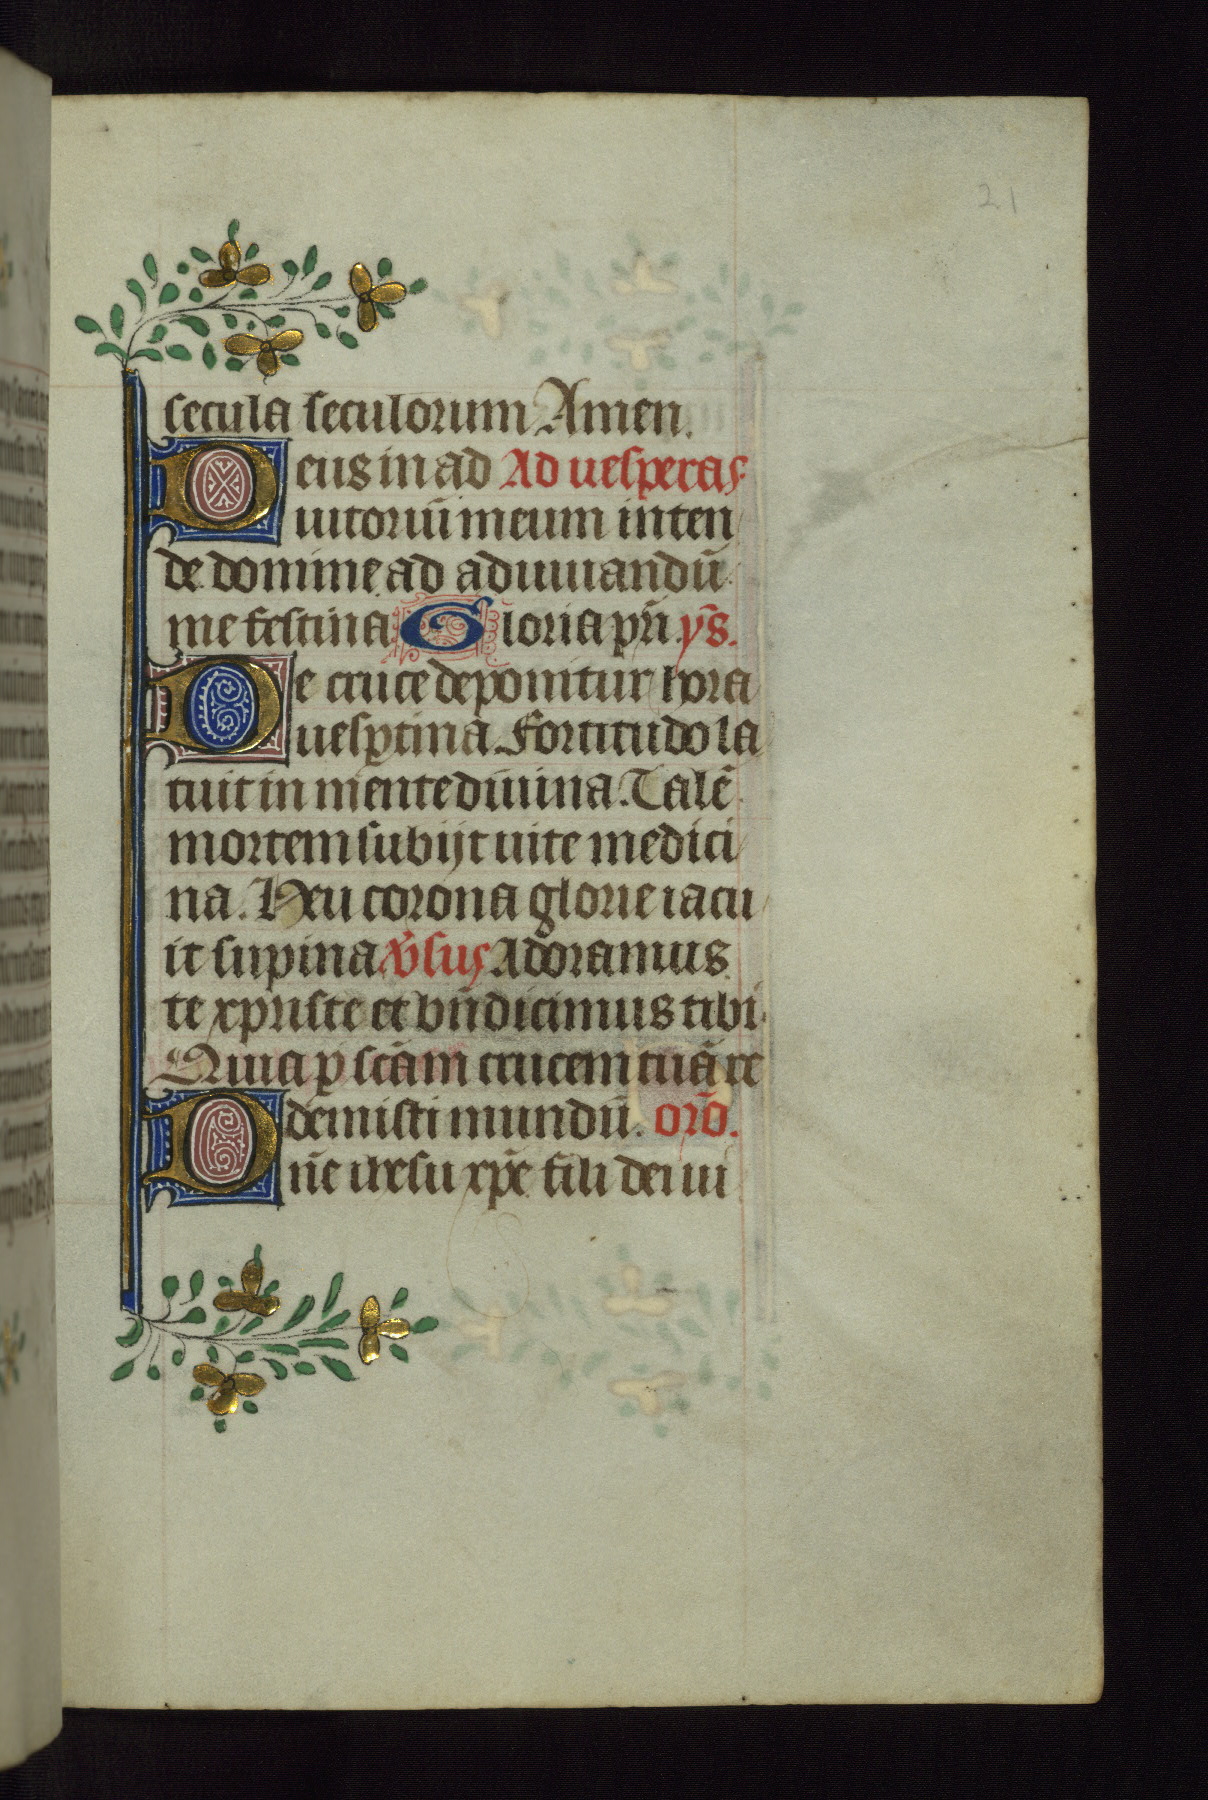 21
secula seculorum Amen.
Deus in ad Ad uesperas
iutoriū meum inten
de domine ad adiuuandū
me festina Gloria pr̄i ys̄.
De cruce deponitur hora
uesꝑtina. Fortitudo la
tuit in mente diuina. Talē
mortem subijt uite medici
na. Heu corona glorie iacu
it supina v̄sus Adoramus
te xpriste et bn̄dicimus tibi
Quia ꝑ scām crucem tuā re
demisti mundū. orō.
Dn̄e ihesu xp̄e fili dei ui